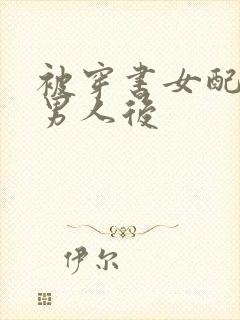 被穿书女配
男人后
伊尔